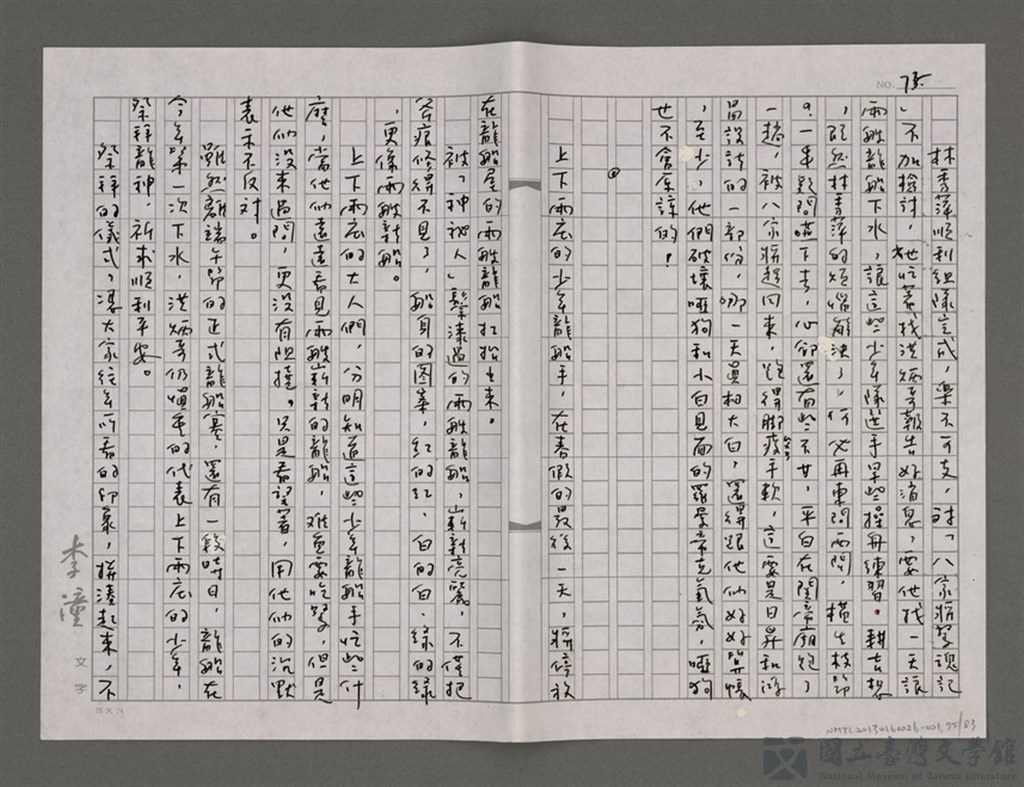 NO. 75
林秀萍順利組隊完成,樂不可支,討「八家將驚魂記
」不加檢討,她忙著找洪炳哥報告好消息,要他找一天讓
兩艘龍船下水,讓這些少年隊選手早些操舟練習。耕吉想
,既然林秀萍的煩惱解決了,何必再東問西問,橫生枝節
。一串疑問嚥下去,心卻還有些不甘,平白在關帝廟跑了
一趟,被八家將趕回來,跑得腳痠手軟,這要是日昇和
昌設計的一部份,哪一天真相大白,還得跟他們好好算帳
,至少,他們破壞啞狗和小白見面的羅曼蒂克氣氛,啞狗
也不會原諒的!
上下兩庄的少年龍船手,在春假的最後一天,將停放
在龍船屋的兩艘龍船扛抬出來。
被「神祕人」髹漆過的兩艘龍船,嶄新亮麗。不僅把
斧痕修得不見了,船身的圖案,紅的紅、白的白、綠的綠
,更像兩艘新船。
上下兩庄的大人們,分明知道這些少年龍船手忙些什
麼,當他們遠遠看見兩艘嶄新的龍船,難免要吃驚,但是
他們沒來過問,更沒有阻撓。只是看望著,用他們的沉默
表示不反對。
雖然離端午節的正式龍船賽,還有一段時日,龍船在
今年第一次下水,洪炳哥仍慎重的代表上下兩庄的少年,
祭拜龍神,祈求順利平安。
祭拜的儀式,憑大家往年所看的印象,拼湊起來,不
李潼
文字
25 X 24
NMTL20130160026-001,75/83
國立臺灣文學館
National Museum of Taiwan Literature